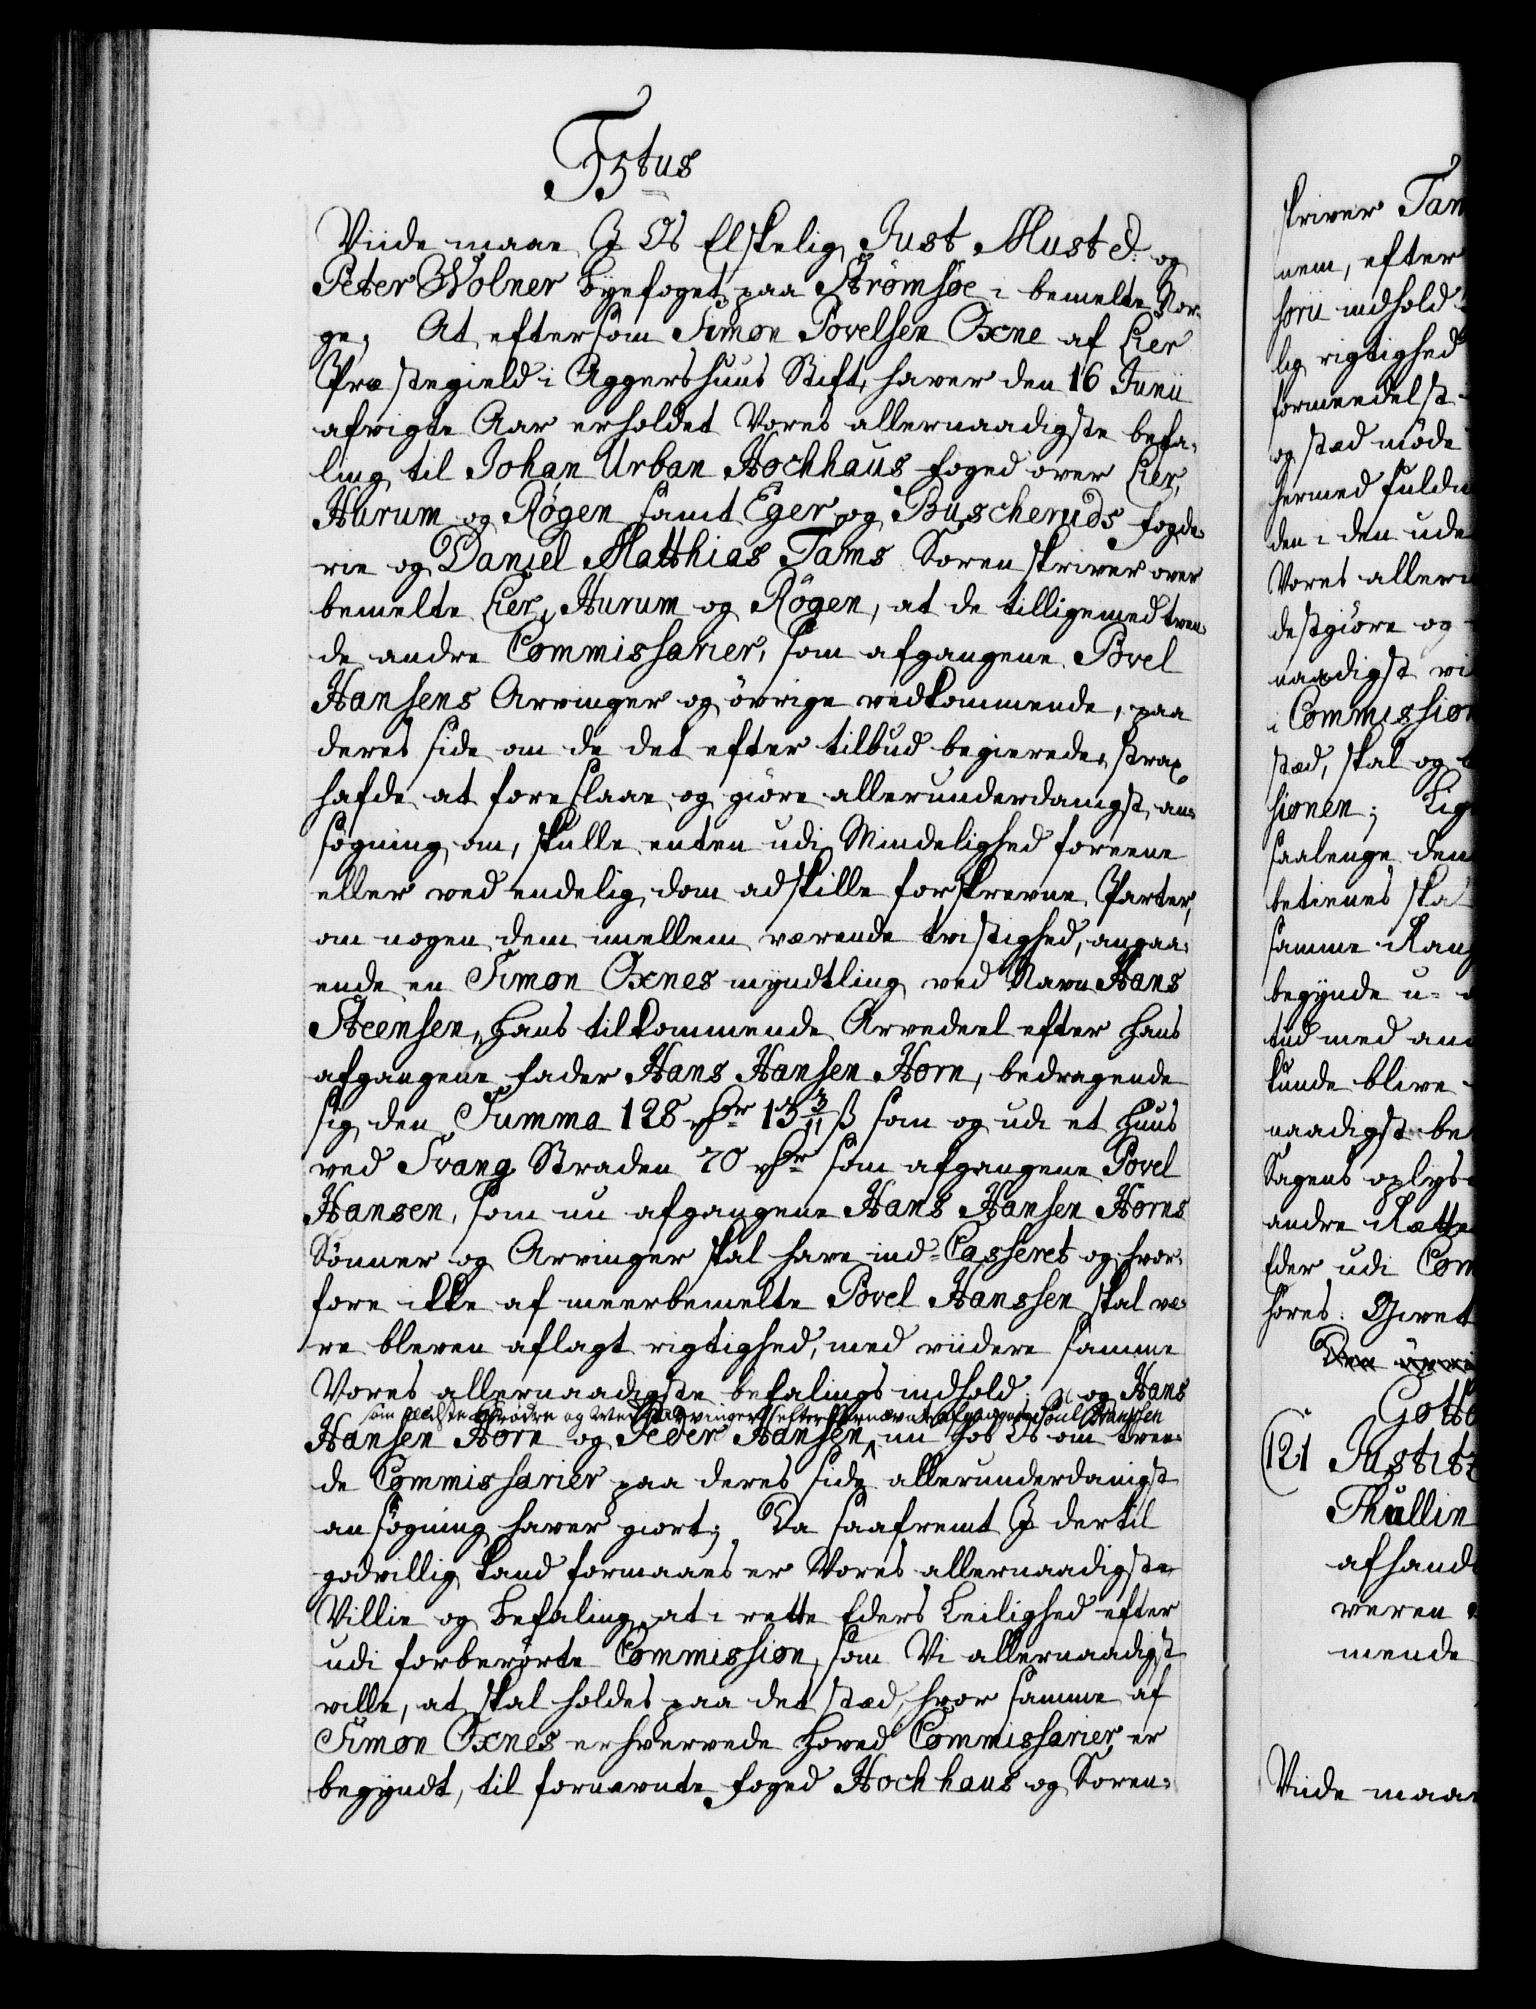 F5tus
Viide maae I Os Elskelig Just Must &: og
Peter Wolner Byefoget paa Strømsøe i bemelte Nor-
ge; At eftersom Simon Povelsen Oxne af Lier
Præstegield i Aggershuus Stift, haver den 16 Junii
afvigte Aar erholdet Vores allernaadigste befa-
ling til Johan Urban Hochhaus foged over Lier,
Hurum og Røgen samt Eger og Buscheruds fogde-
rie og Daniel Matthias Tams Sorenskriver over
bemelte Lier, Hurum og Røgen, at de tilligemed tven-
de andre Commissarier, som afgangene Povel
Hansens Arvinger og øvrige vedkommende, paa
deres side om de det efter tilbud begierede, strax
hafde at foreslaae og giøre allerunderdanigst an-
søgning om, skulle enten udi Mindelighed foreene
eller ved endelig dom adskille forskrevne Parter,
om nogen dem imellem værende tvistighed, angaa-
ende en Simon Oxnes myndtling ved Navn Hans
Steensen, hans tilkommende Arvedeel efter hans
afgangene fader Hans Hansen Horn, bedragende
sig den Summa 128 rdr 13 3/11 ß som og udi et huus
ved Svang Straden 70 rdr som afgangene Povel
Hansen, som nu afgangene Hans Hansen Horns
Sønner og Arvinger skal have ind-Casseret og hvor-
fore ikke af meerbemelte Povel Hanssen skal væ-
re bleven aflagt rigtighed, med viidere samme
Vores allernaadigste befalings indhold; og Hans
som næste Brødre og Med Arvinger efter fornævnte afgangne Poul Hanssen
Hansen Horn og Peder Hansen nu hos Os om tven-
de Commissarier paa deres side allerunderdanigst
ansøgning haver giort; Da saafremt I dertil
godvillig kand formaaes er Vores allernaadigste
Villie og Befaling, at i rette Eders Leilighed efter
udi forberørte Commission, som Vi allernaadigst
ville, at skal holdes paa det stæd, hvor samme af
Simon Oxnes erhvervede hoved Commissarier er
begyndt, til fornævnte foged Hochhaus og Soren-
skriver Tam
nem, efter
horii indhold
lig rigtighed
formeedelst
og stæd møde
hermed fuldm
den i den ude
Vores allern
destgiøre og
naadigst vi
i Commission
stæd, skal og
sionen; Lig
saalenge den
betienes skal
samme Rang
begynde u-
tiid med an
kunde blive
naadigst be
Sagens oplys
andre Rætte
Eder udi Com
høres. Givet
Gott
(121 Justitz
Thullin
afhand
veren
mende
Viide maae